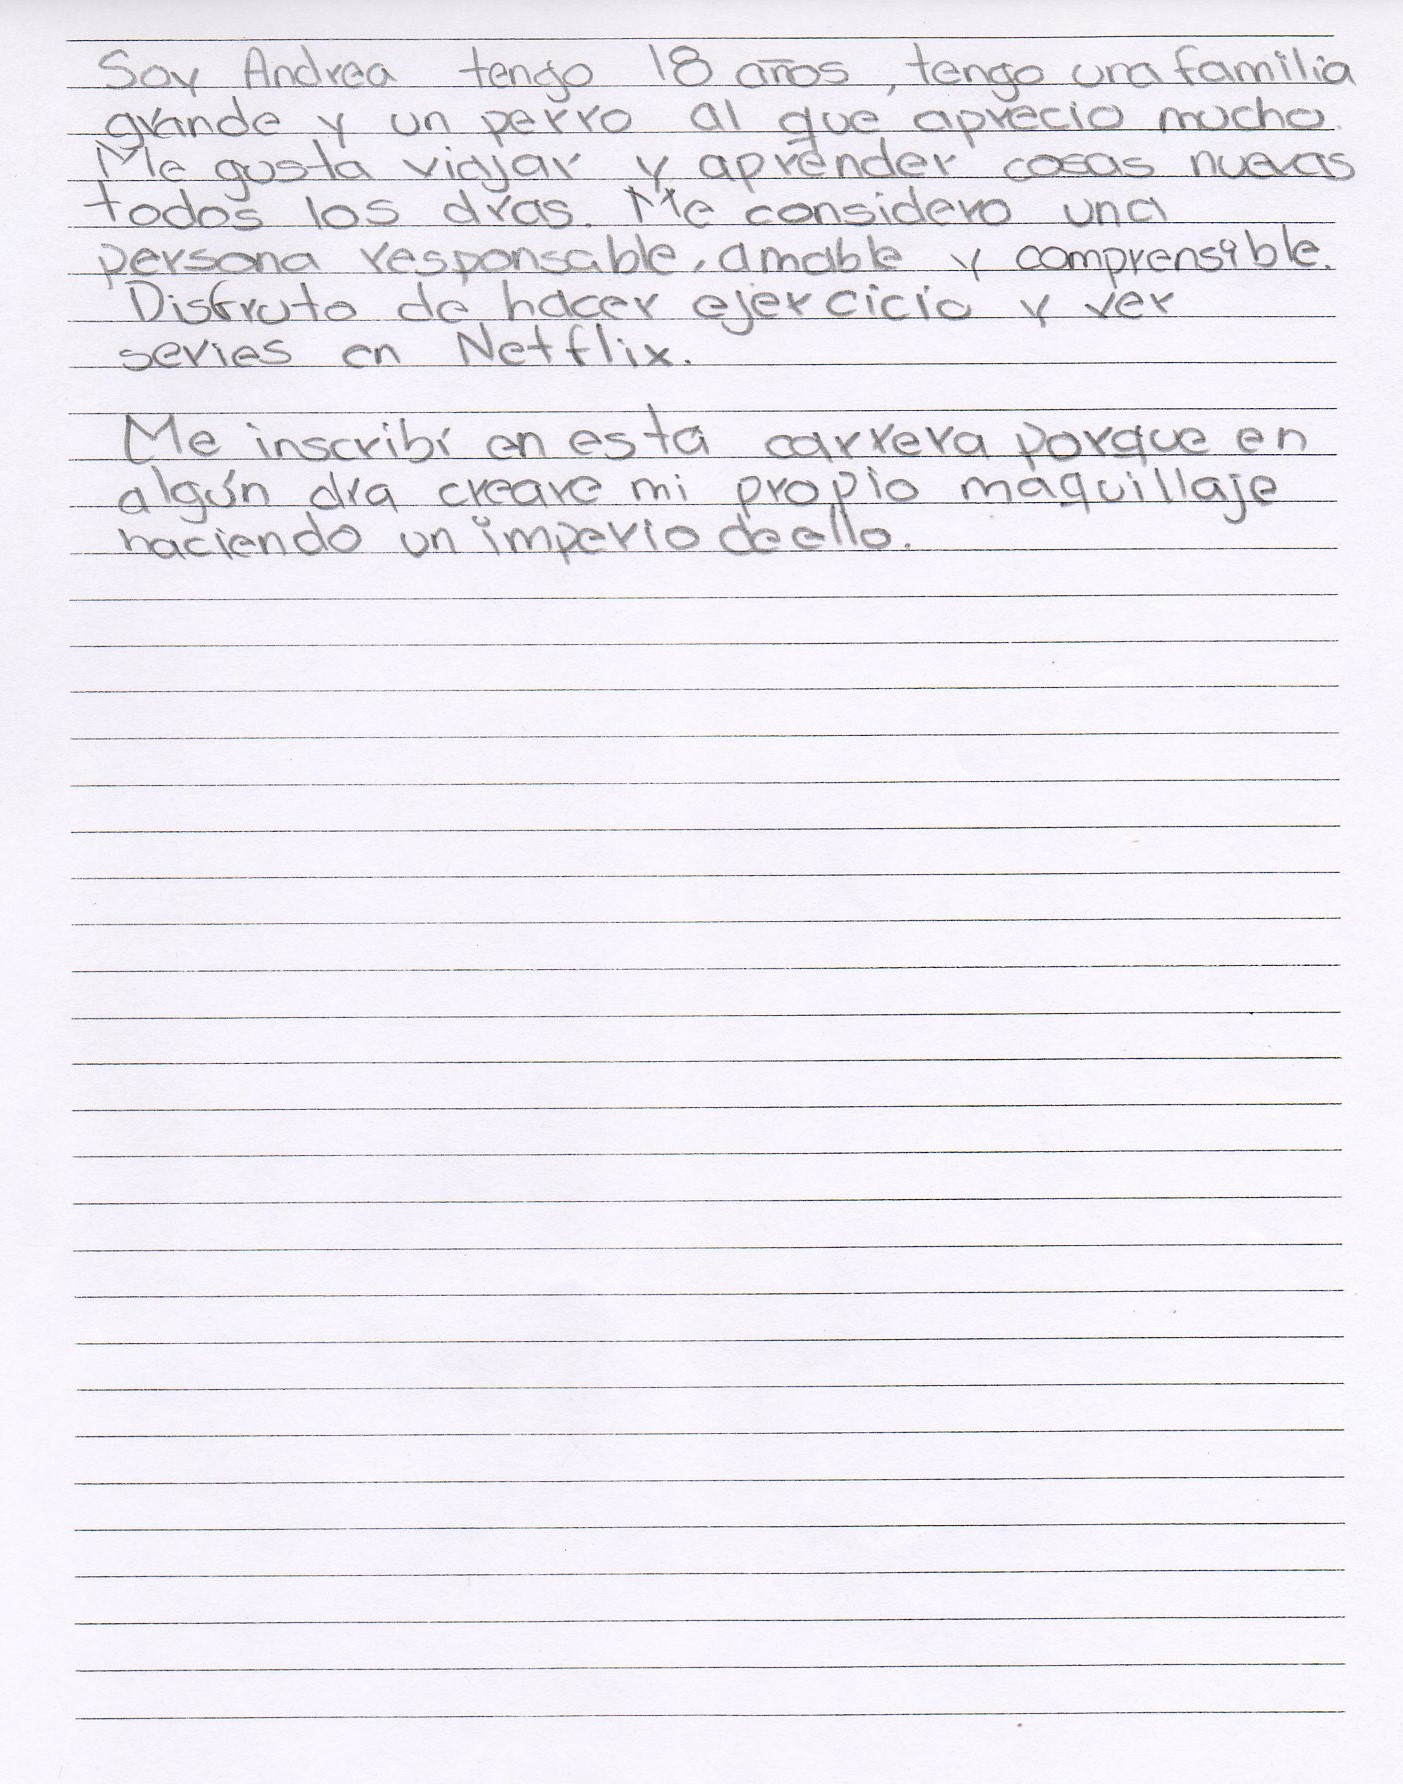 Soy Andrea tengo 18 años, tengo una familia
grande y un perro al que aprecio mucho.
Me gusta viajar y aprender cosas nuevas
todos los días. Me considero una
persona responsable, amable y comprensible.
Disfruto de hacer ejercicio y ver
series en Netflix.
Me inscribí en esta carrera porque en
algún día creare mi propio maquillaje
haciendo un imperio de ello.